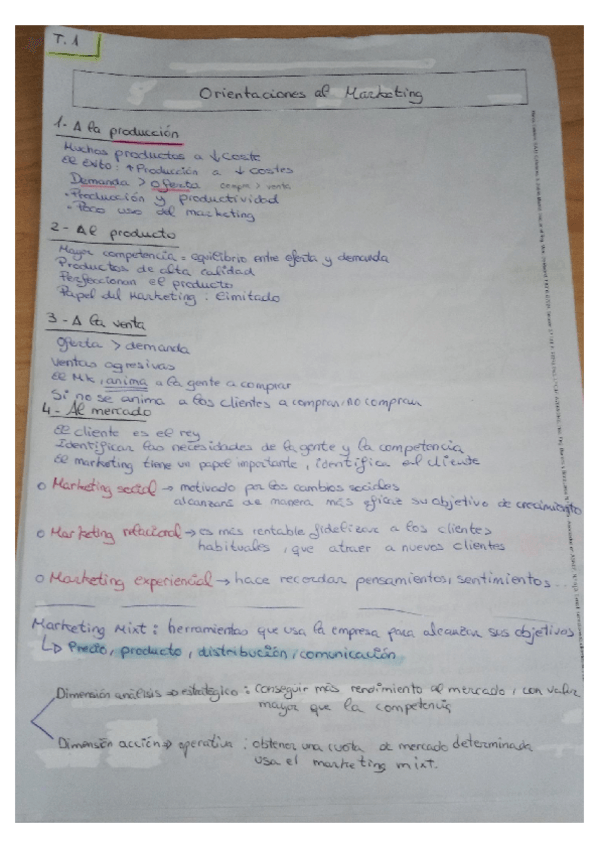 T.1
Orientaciones al Marketing
1- A la producción
Muchos productos a ↓ coste
El éxito: ↑ Producción a ↓ costes
Demanda > oferta compra > venta
• Producción y productividad
• Poco uso del marketing
2- Al producto
Mayor competencia = equilibrio entre oferta y demanda
Productos de alta calidad
Perfeccionan el producto
Papel del Marketing: limitado
3- A la venta
Oferta > demanda
Ventas agresivas
El MK, anima a la gente a comprar
Si no se anima a los clientes a comprar, no compran
4- Al mercado
El cliente es el rey
Identificar las necesidades de la gente y la competencia
El marketing tiene un papel importante, identifica al cliente
o Marketing social → motivado por los cambios sociales
alcanzará de manera más eficaz su objetivo de crecimiento
o Marketing relacional → es más rentable fidelizar a los clientes
habituales, que atraer a nuevos clientes
o Marketing experiencial → hace recordar pensamientos, sentimientos...
Marketing Mixt: herramientas que usa la empresa para alcanzar sus objetivos
↳ Precio, producto, distribución, comunicación
Dimensión análisis ⇒ estratégico: conseguir más rendimiento al mercado, con valor
mayor que la competencia
Dimensión acción ⇒ operativa: obtener una cuota de mercado determinada
usa el marketing mixt.